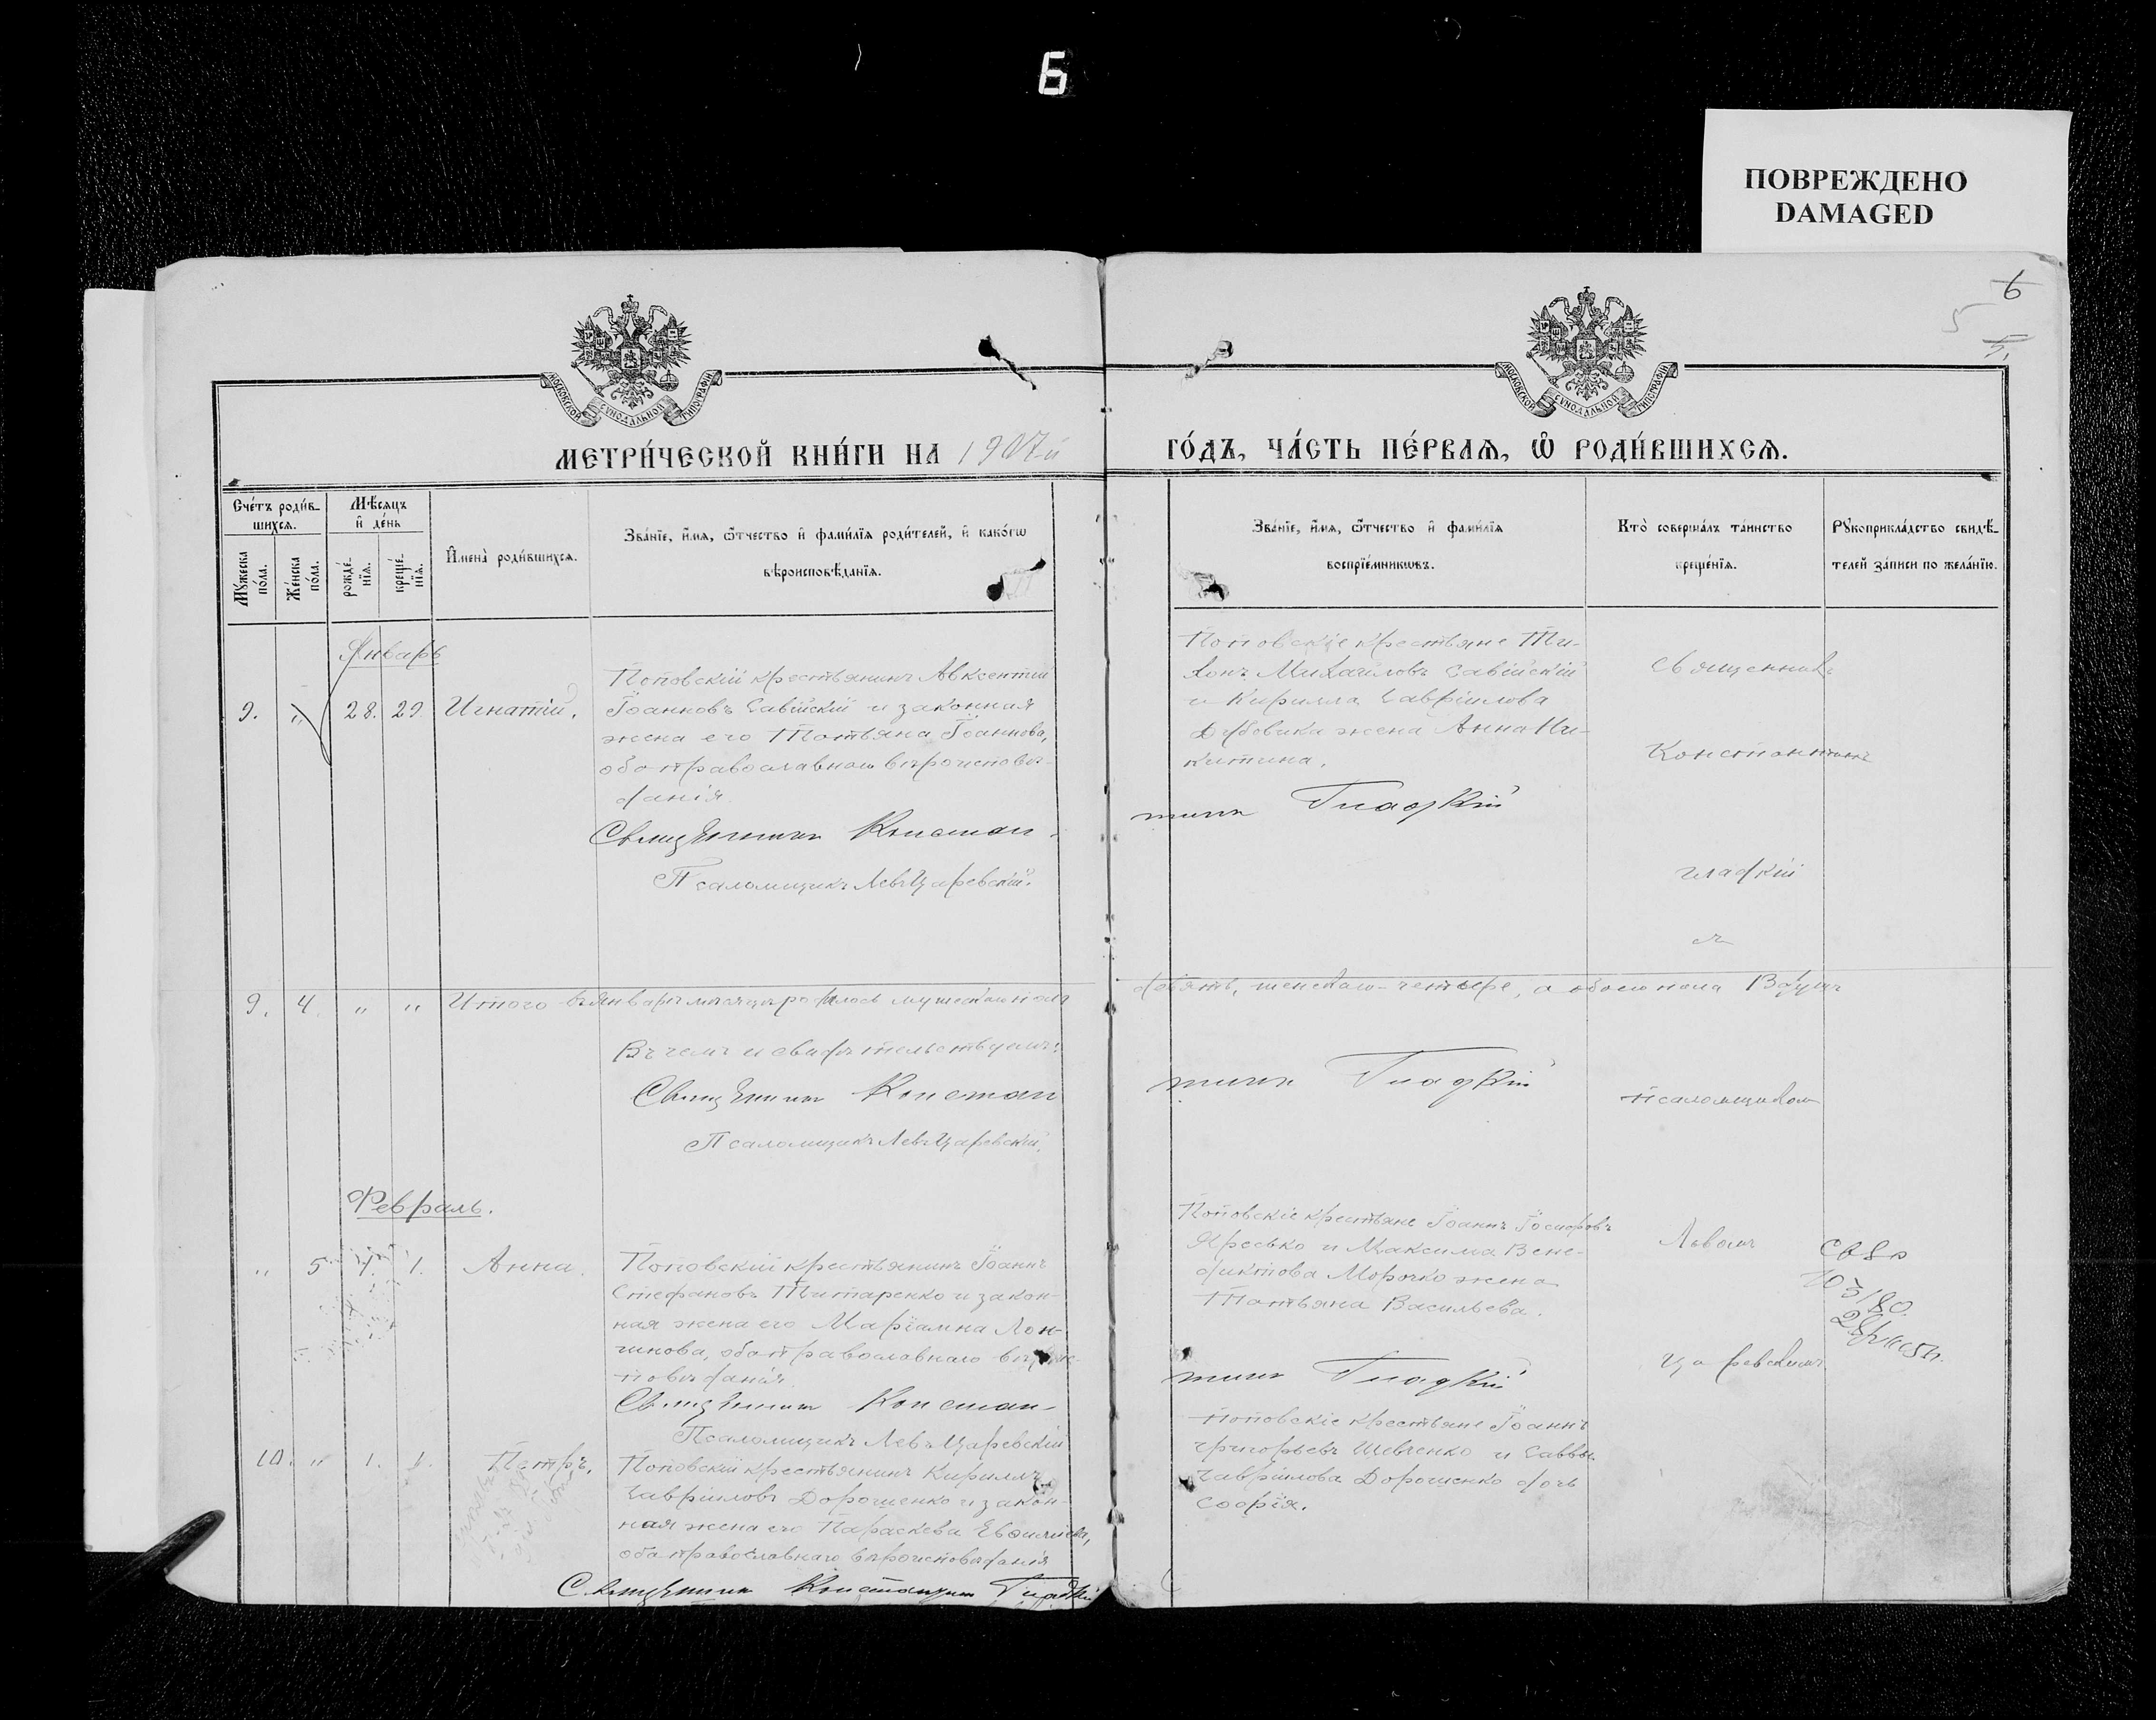 Б
ПОВРЕЖДЕНО
DAMAGED
6
5
5.
МОСКОВСКОЙ СУНОДАЛЬНОЙ ТИПОГРАФІИ
МОСКОВСКОЙ СУНОДАЛЬНОЙ ТИПОГРАФІИ
МЕТРИ́ЧЕСКОЙ КНИ́ГИ НА 1907й
ГО́ДЪ, ЧА́СТЬ ПЕ́РВАѦ, Ѽ РОДИ́ВШИХСѦ.
Сче́тъ роди́в-
шихсѧ.
Мѣ́сѧцъ
и҆ де́нь
Мꙋ́жеска
по́ла.
Же́нска
по́ла.
рожде́-
нїѧ.
креще́-
нїѧ.
И҆мена̀ роди́вшихсѧ.
Зва́нїе, и҆́мѧ, ѻ҆́тчество и҆ фами́лїѧ роди́телей, и҆ како́гѡ
вѣроисповѣ́данїѧ.
Зва́нїе, и҆́мѧ, ѻ҆́тчество и҆ фами́лїѧ
воспрїе́мникѡвъ.
Кто̀ соверша́лъ та́инство
креще́нїѧ.
Рꙋкоприкла́дство свидѣ́-
телей за́писи по жела́нїю.
Январь
9. " 28. 29. Игнатій.
Поповскій крестьянинъ Авксентій
Іоанновъ Савійскій и законная
жена его Татьяна Іоаннова,
оба православнаго вѣроисповѣ-
данія.
Священникъ Констан-
Псаломщикъ Левъ Царевскій.
Поповскіе крестьяне Ти-
хонъ Михаиловъ Савійскій
и Кирилла Гавріилова
Дубовика жена Анна Ни-
китина.
тинъ Гладкій
Священникъ
Константинъ
Гладкій
съ
9. 4. " " Итого въ январѣ мѣсяцѣ родилось мужескаго пола
девять, женскаго - четыре, а обоего пола 13 душъ
Въ чемъ и свидѣтельствуемъ:
Священникъ Констан
Псаломщикъ Левъ Царевскій.
тинъ Гладкій
псаломщикомъ
Февраль.
" 5 1. 1. Анна.
Поповскій крестьянинъ Іоаннъ
Стефановъ Титаренко и закон-
ная жена его Маріамна Лон-
гинова, оба православнаго вѣроис-
повѣданія
Священникъ Констан-
Псаломщикъ Левъ Царевскій
Поповскіе крестьяне Іоаннъ Іосифовъ
Яресько и Максима Вене-
диктова Морочко жена
Татьяна Васильева.
тинъ Гладкій
Львомъ
Царевскимъ.
10. " 1. 1. Петръ.
Поповскій крестьянинъ Кириллъ
Гавріиловъ Дорошенко и закон-
ная жена его Параскева
оба православнаго вѣроисповѣданія
Священникъ Константинъ Гладкій
Поповскіе крестьяне Іоаннъ
Григорьевъ Шевченко и Саввы
Гавріилова Дорошенко дочь
Софія.